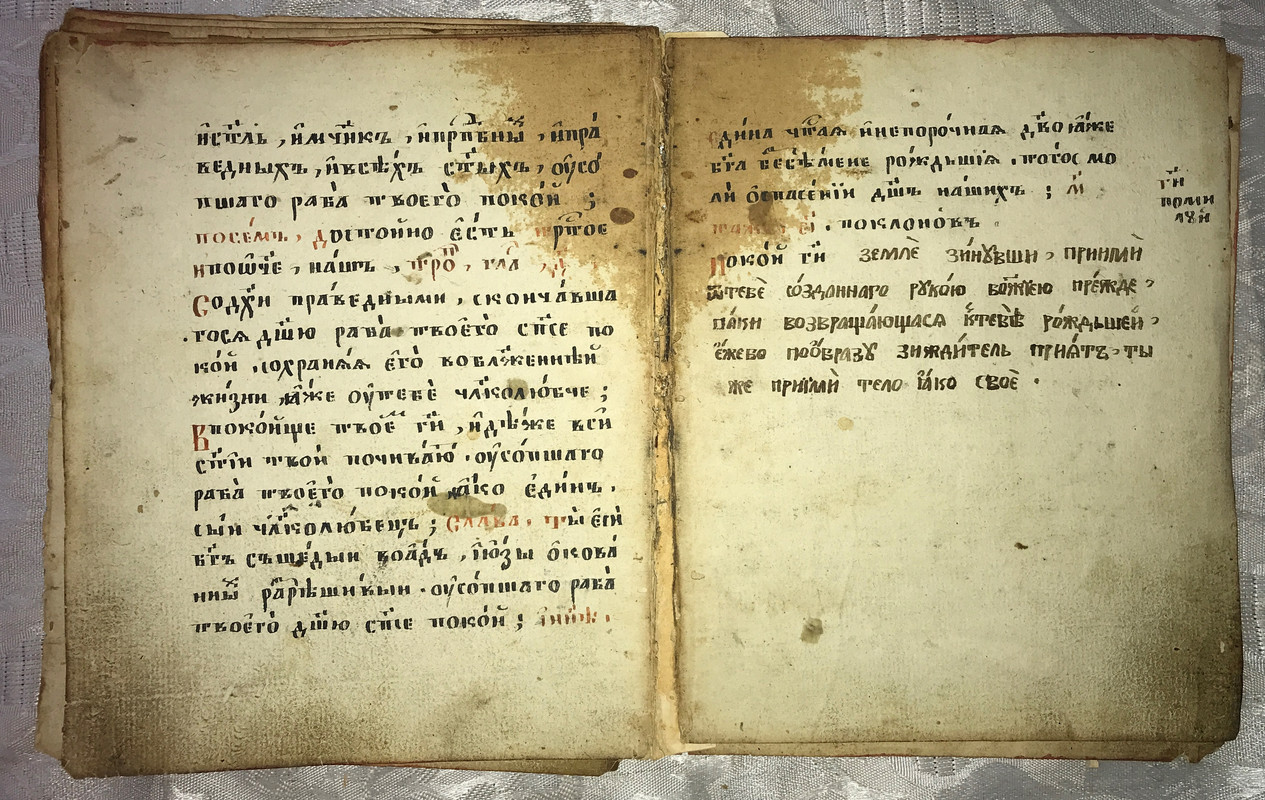 и҆ст҃ль , и҆мч҃нкъ , и҆прпⷣбныⷯ , и҆пра́
ведныхъ , и҆всѣ́хъ ст҃ы́хъ , оу҆со́
пшаго раба̀ твоего̀ поко́й ;
посе́мъ , Досто́йно є҆́сть трⷭ҇тое
и҆поѿче , на́шъ , троⷫ , гла
Со дх҃и пра́ведными , сконча́вша
гося дш҃ю раба̀ твоегѡ̀ сп҃се по
ко́й , сохраня́я е҆го̀ во бл҃же́ннѣй
жи́зни ꙗ҆́же оу҆тебѐ чл҃колю́бче ;
В поко́йще твое́м гдⷭ҇и , и҆дѣ́же вси̑
ст҃і́и твоѝ почива́ю . оу҆со́пшаго
раба̀ твоего̀ поко́й ꙗ҆́ко е҆ди́нъ .
сы́й чл҃колю́бецъ ; Сла́ва , ты̀ є҆сѝ
бг҃ъ съше́дыи во а҆́дъ , и҆ю҆́зы о҆кова́
ныⷯ разрѣши́выи . оу҆со́пшаго раба̀
твоего̀ дш҃ю сп҃се поко́й ; и҆ны́нѣ .
є҆ди́на чт҃ая и҆непоро́чная дв҃о ꙗ҆́же
бг҃а безсѣ́мене ро́ждьшїя . того̀ мо
лѝ о҆спасе́нїи дш҃ъ на́шихъ ;
гдⷭ҇и
поми
луй
поклоно́въ .
Поко́й гдⷭ҇и землѐ зинꙋ́вши , прїимѝ
ѿтебѐ со́зданнаго рꙋко́ю бо́жїею пре́жде ,
па́ки возвраща́ющася ктебѣ̀ ро́ждьшей ,
є҆́же бо по о́бразꙋ зижди́тель прїя́тъ , ты
же прїимѝ тело ꙗ҆́ко своѐ .